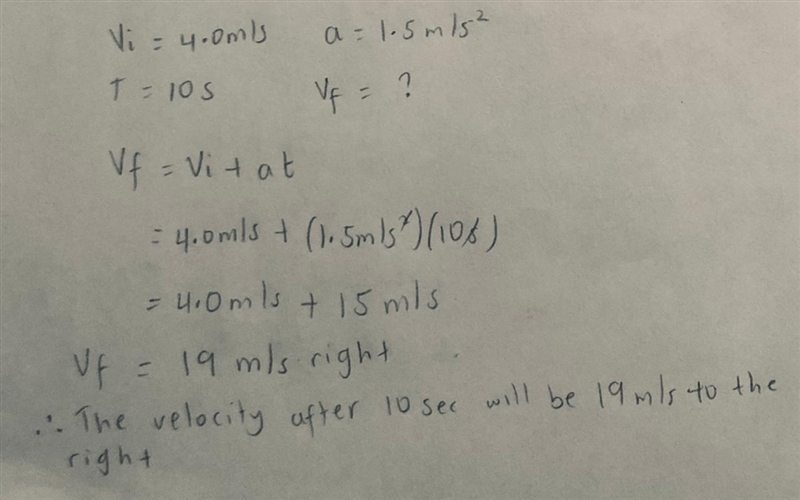 Vi = 4.0m/s a = 1.5m/s²
T = 10s Vf = ?
Vf = Vi + at
= 4.0m/s + (1.5m/s²)(10s)
= 4.0m/s + 15m/s
Vf = 19 m/s right
∴ The velocity after 10 sec will be 19m/s to the
right